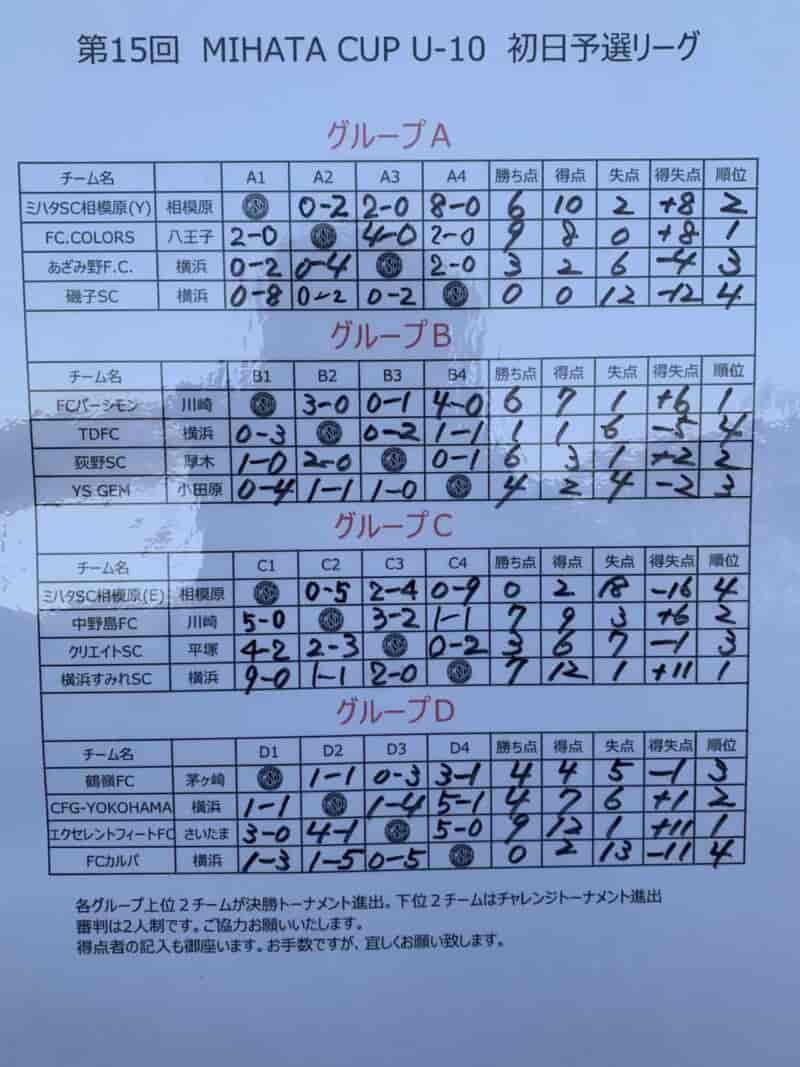 第15回 MIHATA CUP U-10 初日予選リーグ
グループA
チーム名 A1 A2 A3 A4 勝ち点 得点 失点 得失点 順位
ミハタSC相模原(Y) 相模原 0-2 2-0 8-0 6 10 2 +8 2
FC.COLORS 八王子 2-0 4-0 2-0 9 8 0 +8 1
あざみ野F.C. 横浜 0-2 0-4 2-0 3 2 6 -4 3
磯子SC 横浜 0-8 0-2 0-2 0 0 12 -12 4
グループB
チーム名 B1 B2 B3 B4 勝ち点 得点 失点 得失点 順位
FCパーシモン 川崎 3-0 0-1 4-0 6 7 1 +6 1
TDFC 横浜 0-3 0-2 1-1 1 1 6 -5 4
荻野SC 厚木 1-0 2-0 0-1 6 3 1 +2 2
YS GEM 小田原 0-4 1-1 1-0 4 2 4 -2 3
グループC
チーム名 C1 C2 C3 C4 勝ち点 得点 失点 得失点 順位
ミハタSC相模原(E) 相模原 0-5 2-4 0-9 0 2 18 -16 4
中野島FC 川崎 5-0 3-2 1-1 7 9 3 +6 2
クリエイトSC 平塚 4-2 2-3 0-2 3 6 7 -1 3
横浜すみれSC 横浜 9-0 1-1 2-0 7 12 1 +11 1
グループD
チーム名 D1 D2 D3 D4 勝ち点 得点 失点 得失点 順位
鶴嶺FC 茅ヶ崎 1-1 0-3 3-1 4 4 5 -1 3
CFG-YOKOHAMA 横浜 1-1 1-4 5-1 4 7 6 +1 2
エクセレントフィートFC さいたま 3-0 4-1 5-0 9 12 1 +11 1
FCカルパ 横浜 1-3 1-5 0-5 0 2 13 -11 4
各グループ上位２チームが決勝トーナメント進出。下位２チームはチャレンジトーナメント進出
審判は2人制です。ご協力お願いいたします。
得点者の記入も御座います。お手数ですが、宜しくお願い致します。